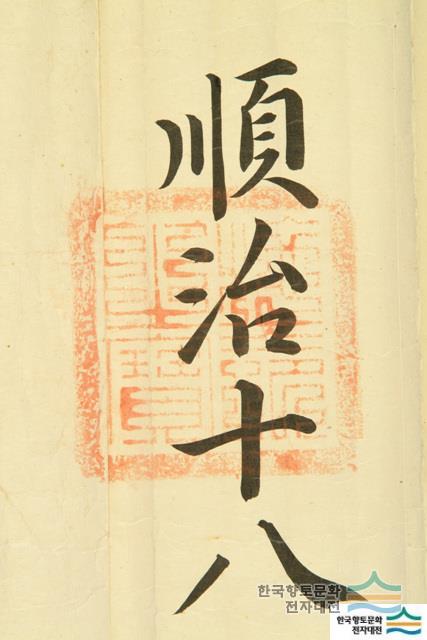 順治十八
한국향토문화
전자대전
한국향토문화
전자대전